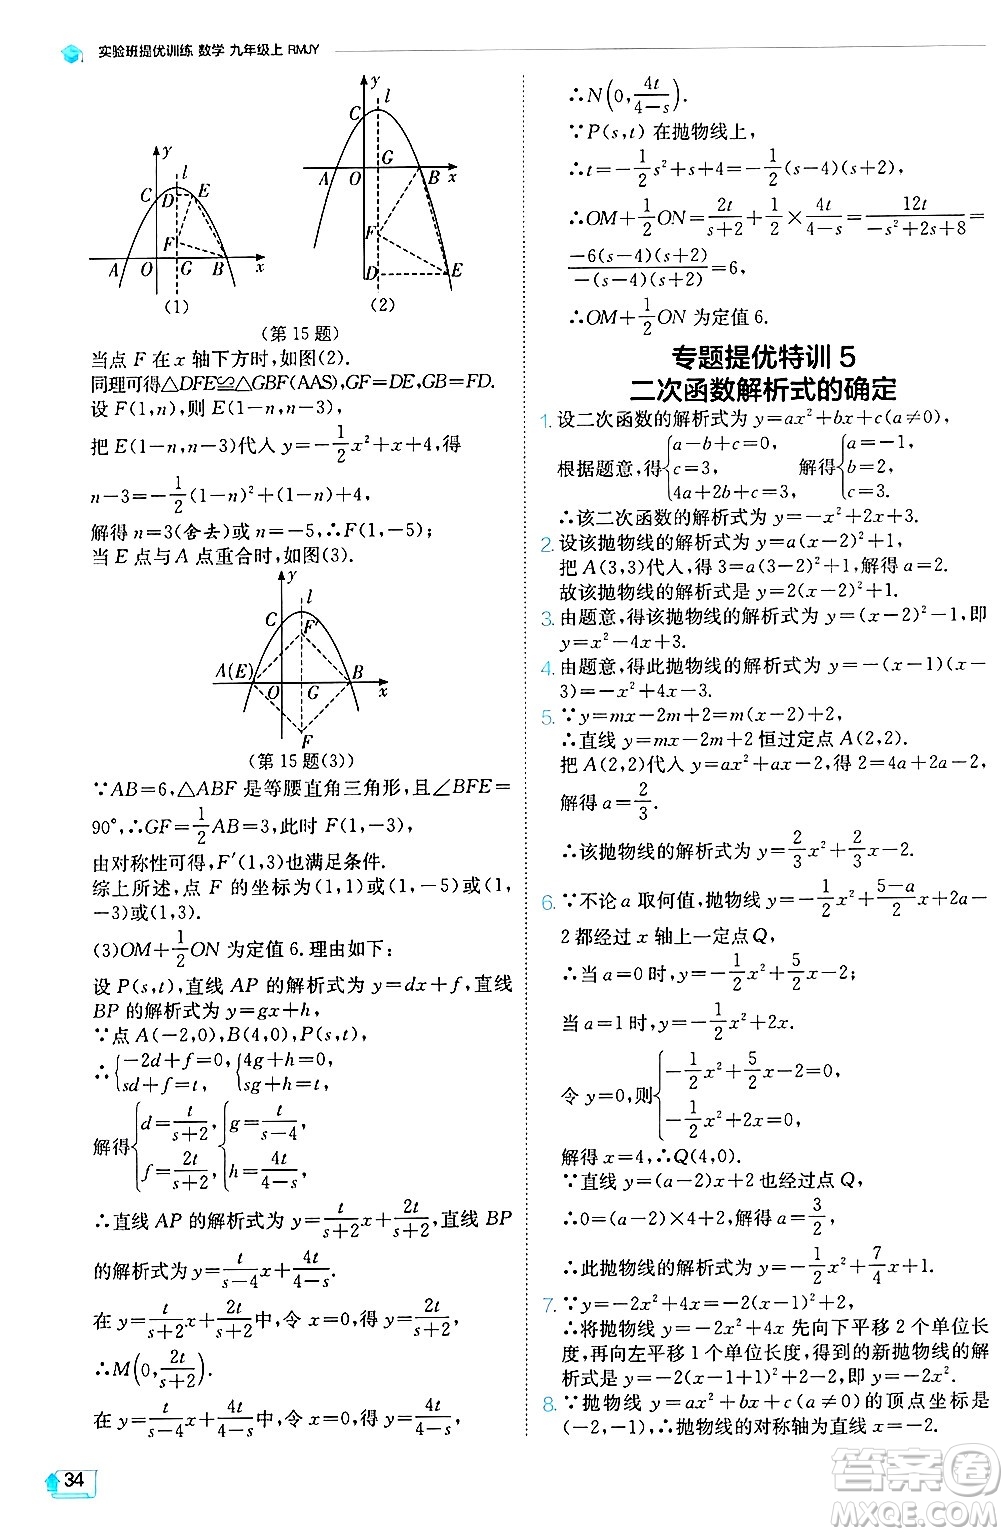 实验班提优训练 数学 九年级上 RMJY
y
l
C
D
E
F
A
O
G
B
x
(1)
y
l
C
G
A
O
B
x
F
D
E
(2)
(第15题)
当点F在x轴下方时,如图(2).
同理可得△DFE≌△GBF(AAS),GF=DE,GB=FD.
设F(1,n),则E(1-n,n-3),
把E(1-n,n-3)代人y=-1/2x²+x+4,得
n-3=-1/2(1-n)²+(1-n)+4,
解得n=3(舍去)或n=-5,∴F(1,-5);
当E点与A点重合时,如图(3).
y
l
C
F′
A(E)
B
O
G
x
F
(第15题(3))
∵AB=6,△ABF是等腰直角三角形,∠BFE=
90°,∴GF=1/2AB=3,此时F(1,-3),
由对称性可得,F′(1,3)也满足条件.
综上所述,点F的坐标为(1,1)或(1,-5)或(1,
-3)或(1,3).
(3)OM+1/2ON为定值6.理由如下:
设P(s,t),直线AP的解析式为y=dx+f,直线
BP的解析式为y=gx+h,
∵点A(-2,0),B(4,0),P(s,t),
∴{-2d+f=0, sd+f=t, {4g+h=0, sg+h=t,
解得{d=t/(s+2), f=2t/(s+2), {g=t/(s-4), h=4t/(4-s),
∴直线AP的解析式为y=t/(s+2)x+2t/(s+2),直线BP
的解析式为y=t/(s-4)x+4t/(4-s).
在y=t/(s+2)x+2t/(s+2)中,令x=0,得y=2t/(s+2),
∴M(0,2t/(s+2)).
在y=t/(s-4)x+4t/(4-s)中,令x=0,得y=4t/(4-s),
∴N(0,4t/(4-s)).
∵P(s,t)在抛物线上,
∴t=-1/2s²+s+4=-1/2(s-4)(s+2),
∴OM+1/2ON=2t/(s+2)+1/2×4t/(4-s)=12t/(-s²+2s+8)=
-6(s-4)(s+2)/-(s-4)(s+2)=6,
∴OM+1/2ON为定值6.
专题提优特训5
二次函数解析式的确定
1. 设二次函数的解析式为y=ax²+bx+c(a≠0),
根据题意,得{a-b+c=0, c=3, 4a+2b+c=3, 解得{a=-1, b=2, c=3.
∴该二次函数的解析式为y=-x²+2x+3.
2. 设该抛物线的解析式为y=a(x-2)²+1,
把A(3,3)代人,得3=a(3-2)²+1,解得a=2.
故该抛物线的解析式是y=2(x-2)²+1.
3. 由题意,得该抛物线的解析式为y=(x-2)²-1,即
y=x²-4x+3.
4. 由题意,得此抛物线的解析式为y=-(x-1)(x-
3)=-x²+4x-3.
5. ∵y=mx-2m+2=m(x-2)+2,
∴直线y=mx-2m+2恒过定点A(2,2).
把A(2,2)代人y=ax²+ax-2,得2=4a+2a-2,
解得a=2/3.
∴该抛物线的解析式为y=2/3x²+2/3x-2.
6. ∵不论a取何值,抛物线y=-1/2x²+(5-a)/2x+2a-
2都经过x轴上一定点Q,
∴当a=0时,y=-1/2x²+5/2x-2;
当a=1时,y=-1/2x²+2x.
令y=0,则{-1/2x²+5/2x-2=0, -1/2x²+2x=0,
解得x=4,∴Q(4,0).
∵直线y=(a-2)x+2经过点Q,
∴0=(a-2)×4+2,解得a=3/2,
∴此抛物线的解析式为y=-1/2x²+7/4x+1.
7. ∵y=-2x²+4x=-2(x-1)²+2,
∴将抛物线y=-2x²+4x先向下平移2个单位长
度,再向左平移1个单位长度,得到的新抛物线的解
析式是y=-2(x-1+1)²+2-2=-2x².
8. ∵抛物线y=ax²+bx+c(a≠0)的顶点坐标是
(-2,-1),∴抛物线的对称轴为直线x=-2.
34
答案圈
MXQE.COM